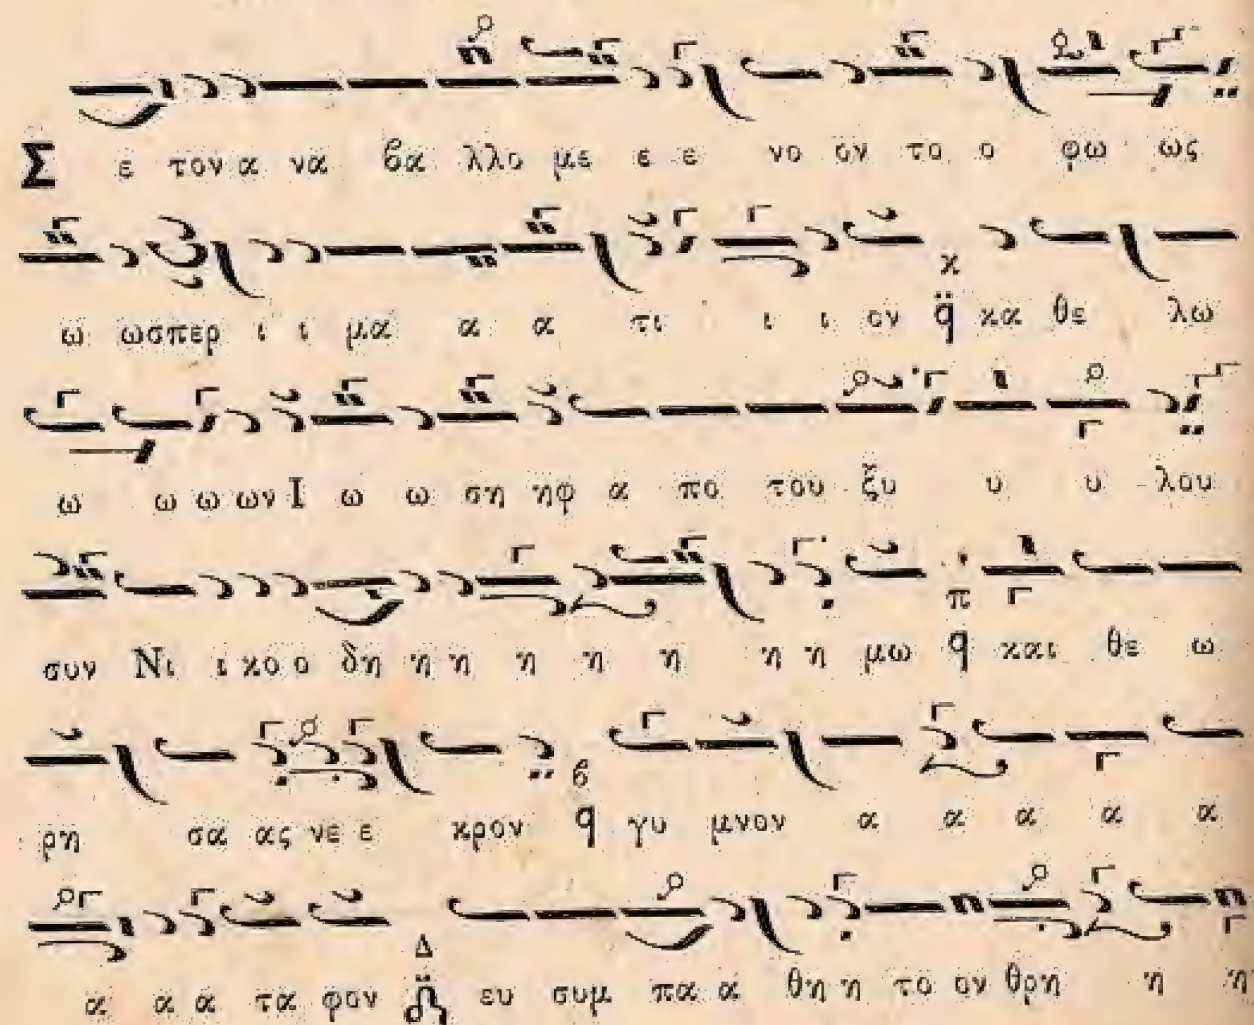 Σ ε τον α να βα λλο με ε ε νο ον το ο φω ως
ω ωσπερ ι ι μα α α τι ι ι ον q̈ κα θε λω
ω ω ω ων Ι ω ω ση ηφ α πο του ξυ υ υ λου
συν Νι ι κο ο δη η η η η η η η μω q και θε ω
ρη σα ας νε ε κρον q γυ μνον α α α α α
α α α τα φον Δ ευ συμ πα α θη η το ον θρη η η